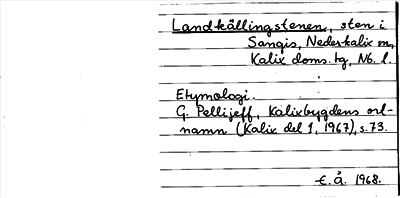 Landkällingstenen, sten i
Sangis, Nederkalix sn,
Kalix doms. tg, Nb. l.
Etymologi.
G. Pellijeff, Kalixbygdens ort-
namn (Kalix del 1, 1967), s. 73.
E. Å. 1968.